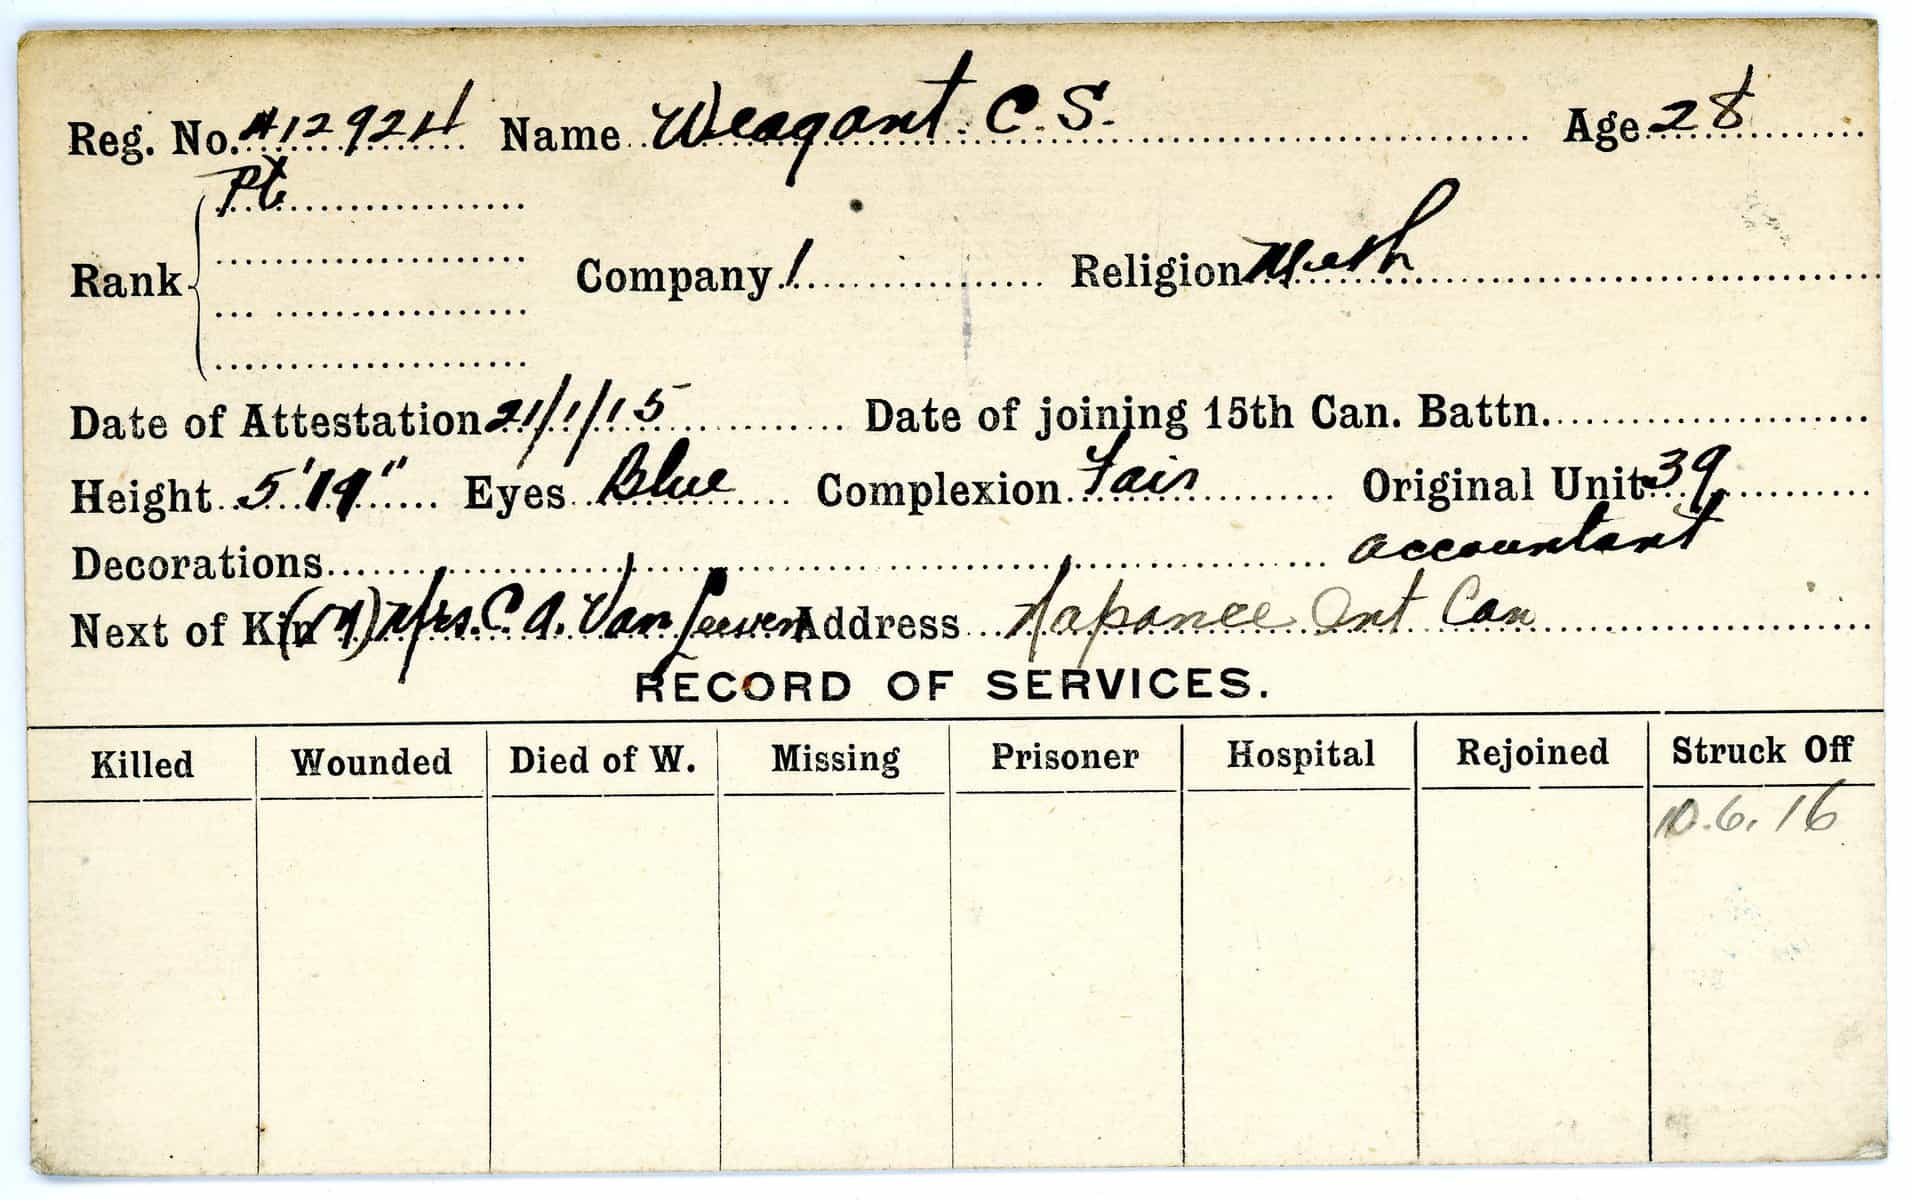 Reg. No. 412924 Name Weagant. C. S. Age 28
Pt
Rank Company 1 Religion Meth
Date of Attestation 21/1/15 Date of joining 15th Can. Battn.
Height 5' Eyes Blue Complexion Fair Original Unit 39
Decorations accountant
Next of Kin Mrs. C. A. Van Address Napanee Ont Can
RECORD OF SERVICES.
Killed Wounded Died of W. Missing Prisoner Hospital Rejoined Struck Off
10.6.16